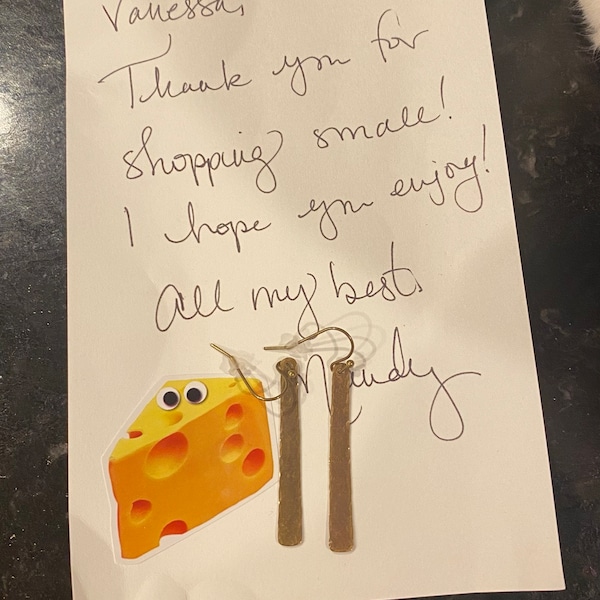 Vanessa,
Thank you for
shopping small!
I hope you enjoy!
All my best,
Mandy